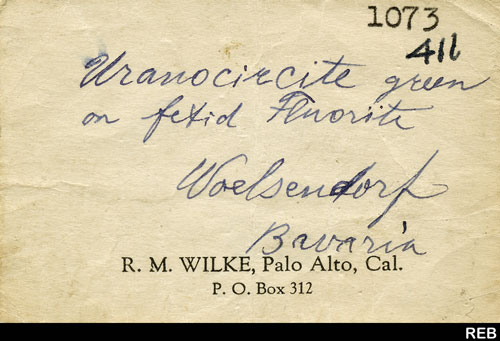 1073
411
Uranocircite green
on fetid Fluorite
Woelsendorf
Bavaria
R. M. WILKE, Palo Alto, Cal.
P. O. Box 312
REB